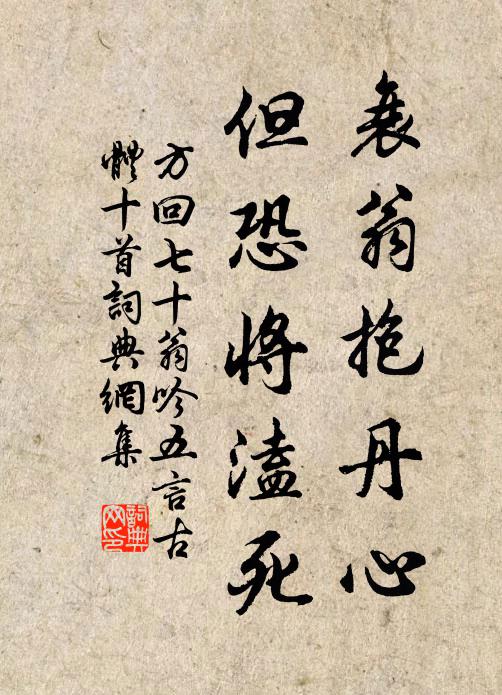 衰翁抱丹心
但恐將溘死
方回七十翁吟五言古
體十首詞典網集
詞典网印